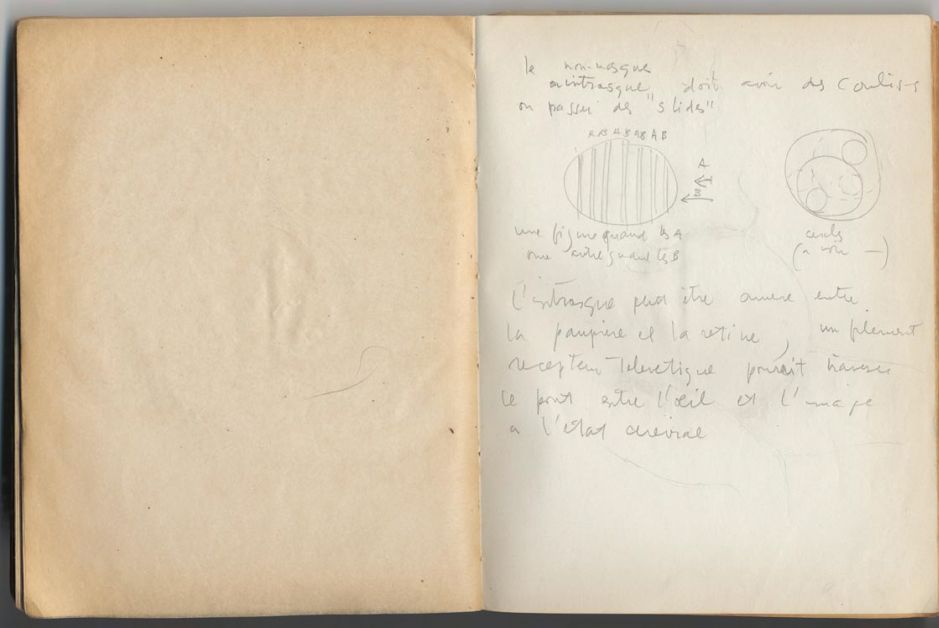 le non-masque
ou intrasque doit avoir des coulisses
ou passer des "slides"
A B A B A B A B
A
B
une figure quand les A
une autre quand les B
cercles
(a voir —)
L'intrasque peut être amené entre
la paupière et la retine, un filament
recepteur Teleretique pourait traverser
le pont entre l'œil et l'image
a l'état cerebral